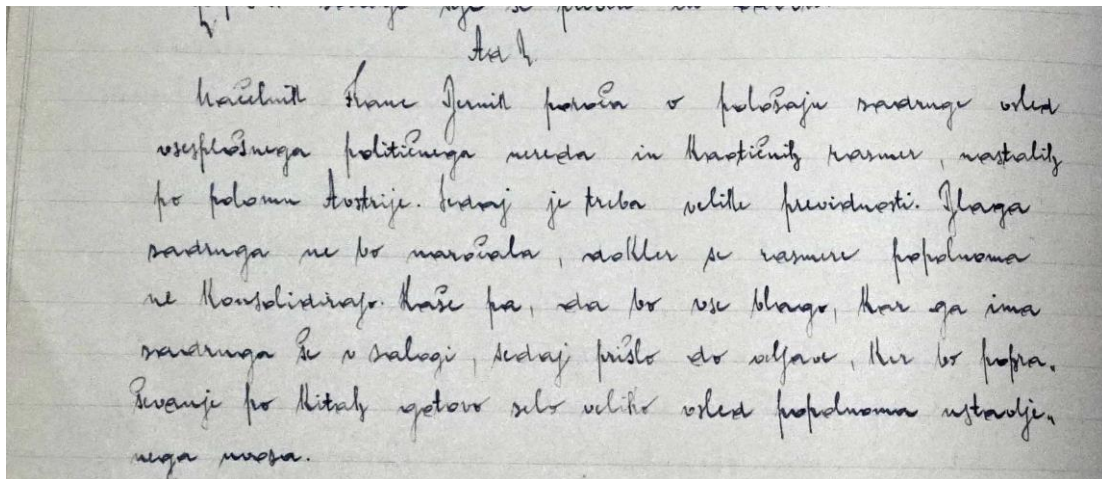 Ad 2.
Načelnik Franc Jernik poroča o položaju zadruge vsled
vsesplošnega političnega nereda in kaotičnih razmer, nastalih
po polomu Avstrije. Sedaj je treba velike previdnosti. Blaga
zadruga ne bo naročala, dokler se razmere popolnoma
ne konsolidirajo. Kaže pa, da bo vse blago, kar ga ima
zadruga še v zalogi, sedaj prišlo do veljave, ker bo popra„
ševanje po kitah gotovo zelo veliko vsled popolnoma ustavlje„
nega uvoza.